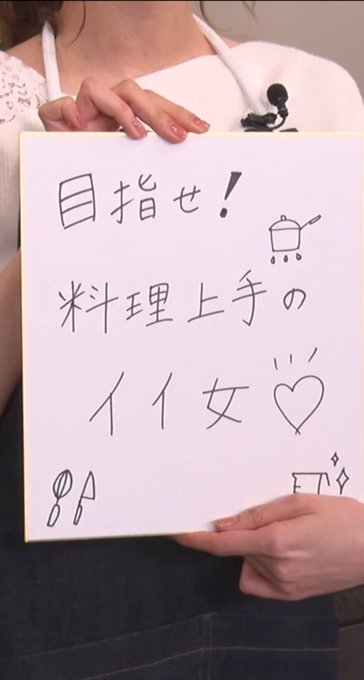 目指せ！
料理上手の
イイ女♡